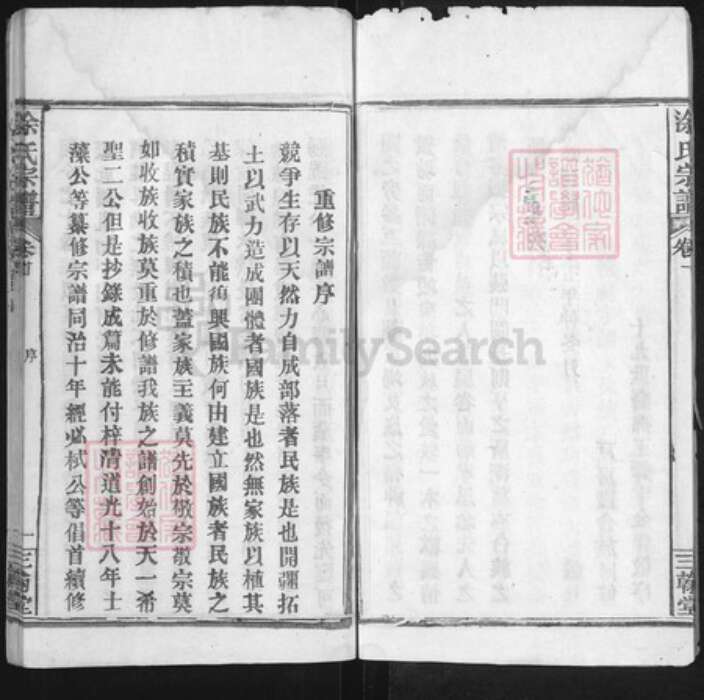 涂氏宗譜
卷一
三翰堂
重修宗譜序
競爭生存以天然力自成部落者民族是也開疆拓
土以武力造成團體者國族是也然無家族以植其
基則民族不能復興國族何由建立國族者民族之
積實家族之積也蓋家族主義莫先於敬宗敬宗莫
如收族收族莫重於修譜我族之譜創始於天一希
聖二公但是抄錄成篇未能付梓清道光十八年士
藻公等纂修宗譜同治十年經必栻公等倡首續修
涂氏宗譜
序
一
三翰堂
FamilySearch